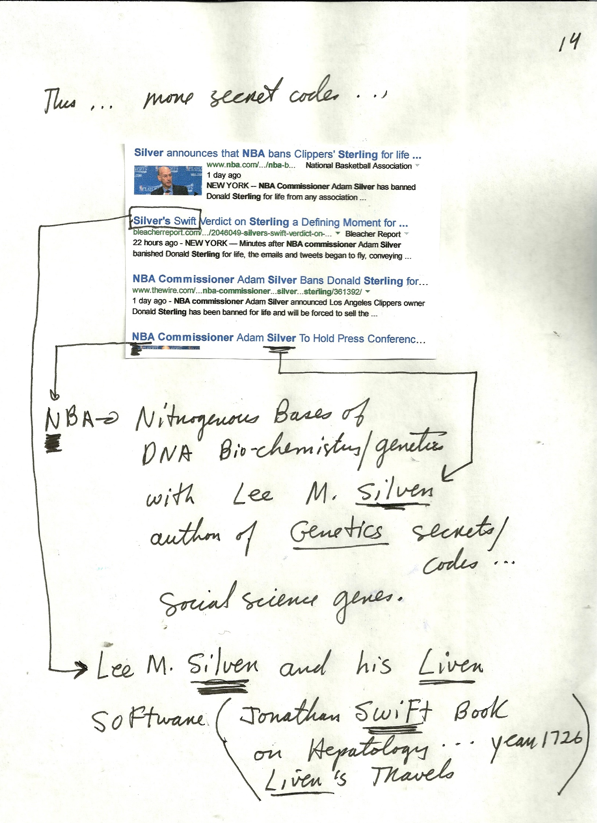 14
Thus ... more secret codes ...
Silver announces that NBA bans Clippers' Sterling for life ...
www.nba.com/.../nba-b... National Basketball Association
1 day ago
NEW YORK – NBA Commissioner Adam Silver has banned
Donald Sterling for life from any association ...
Silver's Swift Verdict on Sterling a Defining Moment for ...
bleacherreport.com/.../2046049-silvers-swift-verdict-on-... Bleacher Report
22 hours ago - NEW YORK — Minutes after NBA commissioner Adam Silver
banished Donald Sterling for life, the emails and tweets began to fly, conveying ...
NBA Commissioner Adam Silver Bans Donald Sterling for...
www.thewire.com/...nba-commissioner...silver...sterling/361392/
1 day ago - NBA commissioner Adam Silver announced Los Angeles Clippers owner
Donald Sterling has been banned for life and will be forced to sell the ...
NBA Commissioner Adam Silver To Hold Press Conferenc...
NBA → Nitrogenous Bases of
DNA Bio-chemistry/genetics
with Lee M. Silver
author of Genetics secrets/
codes ...
Social science genes.
Lee M. Silver and his Liver
Software (Jonathan Swift Book
on Hepatology ... year 1726
Liver's Travels)